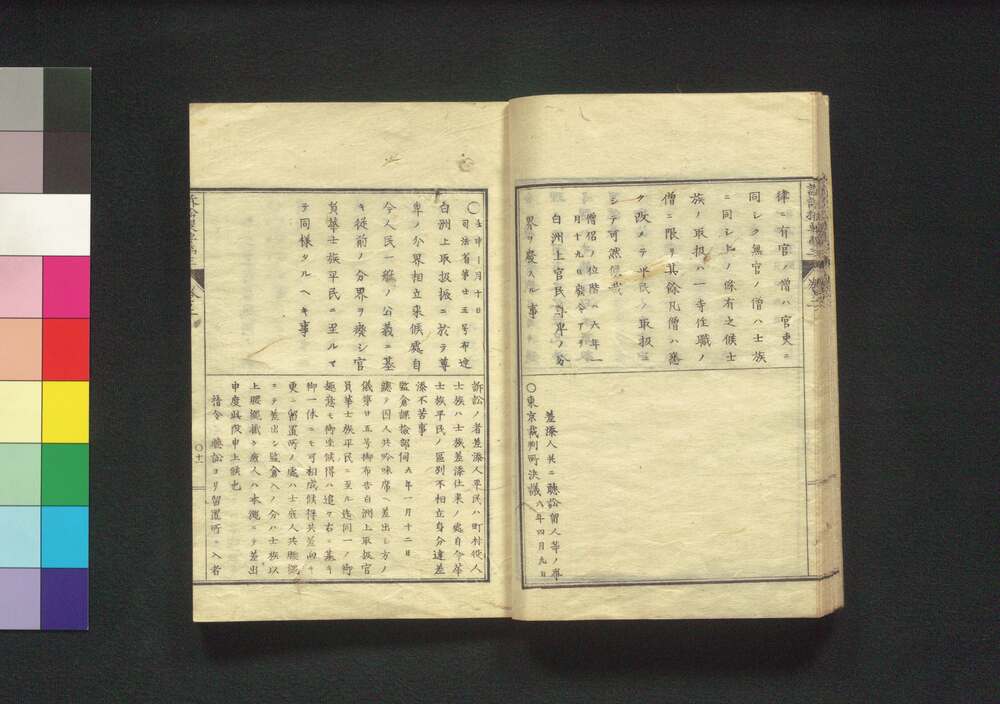 律ニ有官ノ僧ハ官吏ニ
同シク無官ノ僧ハ士族
ニ同シトノ條有之候士
族ノ取扱ハ一寺住職ノ
僧ニ限リ其餘凡僧ハ悉
ク改メテ平民ノ取扱ニ
シテ可然候哉
僧侶ノ位階ハ六年一
月十九日發令アリ
白洲上官民尊卑ノ分
界ヲ廢スル事
差添人共ニ聽訟留人等ノ
〇東京裁判所決議 八年四月九日
〇壬申十月十日
司法省第廿五号布達
白洲上取扱振ニ於テ尊
卑ノ分界相立来候處自
今人民一般ノ公義ニ基
キ從前ノ分界ヲ廢シ官
員華士族平民ニ至ルマ
テ同様タルヘキ事
訴訟ノ者差添人平民ハ町村役人
士族ハ士族差添仕来ノ處自今華
士族平民ノ區別不相立身分違差
添不苦事
監倉課檢部伺 九年一月十二日
總テ囚人共吟味席ヘ差出シ方ノ
儀第廿五号御布告白洲上取扱官
員華士族平民ニ至ル迄同一ノ御
趣意モ御座候得ハ追々右ニ基キ
御一体ニモ可相成候得共差向キ
更ニ留置所ノ處ハ士庶人共腰縄
ニテ差出シ監倉入ノ分ハ士族以
上腰縄戴キ庶人ハ本縄ニテ差出
申度此段申上候也
指令 聽訟ヨリ留置所ニ入者